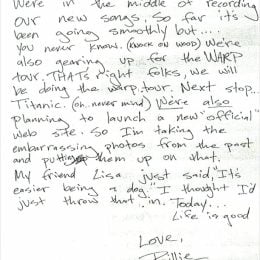 We're in the middle of recording
our new songs. So far it's
been going smoothly but....
you never know. (KNOCK ON WOOD) We're
also gearing up for the WARP
tour. THATs right folks, we will
be doing the warp.tour. Next stop...
Titanic. (oh. never mind) We're also
planning to launch a new "official"
web site. So I'm taking the
embarrassing photos from the past
and putting them up on that.
My friend Lisa just said, "It's
easier being a dog." I thought I'd
just throw that in. Today...
Life is good
Love,
Billie